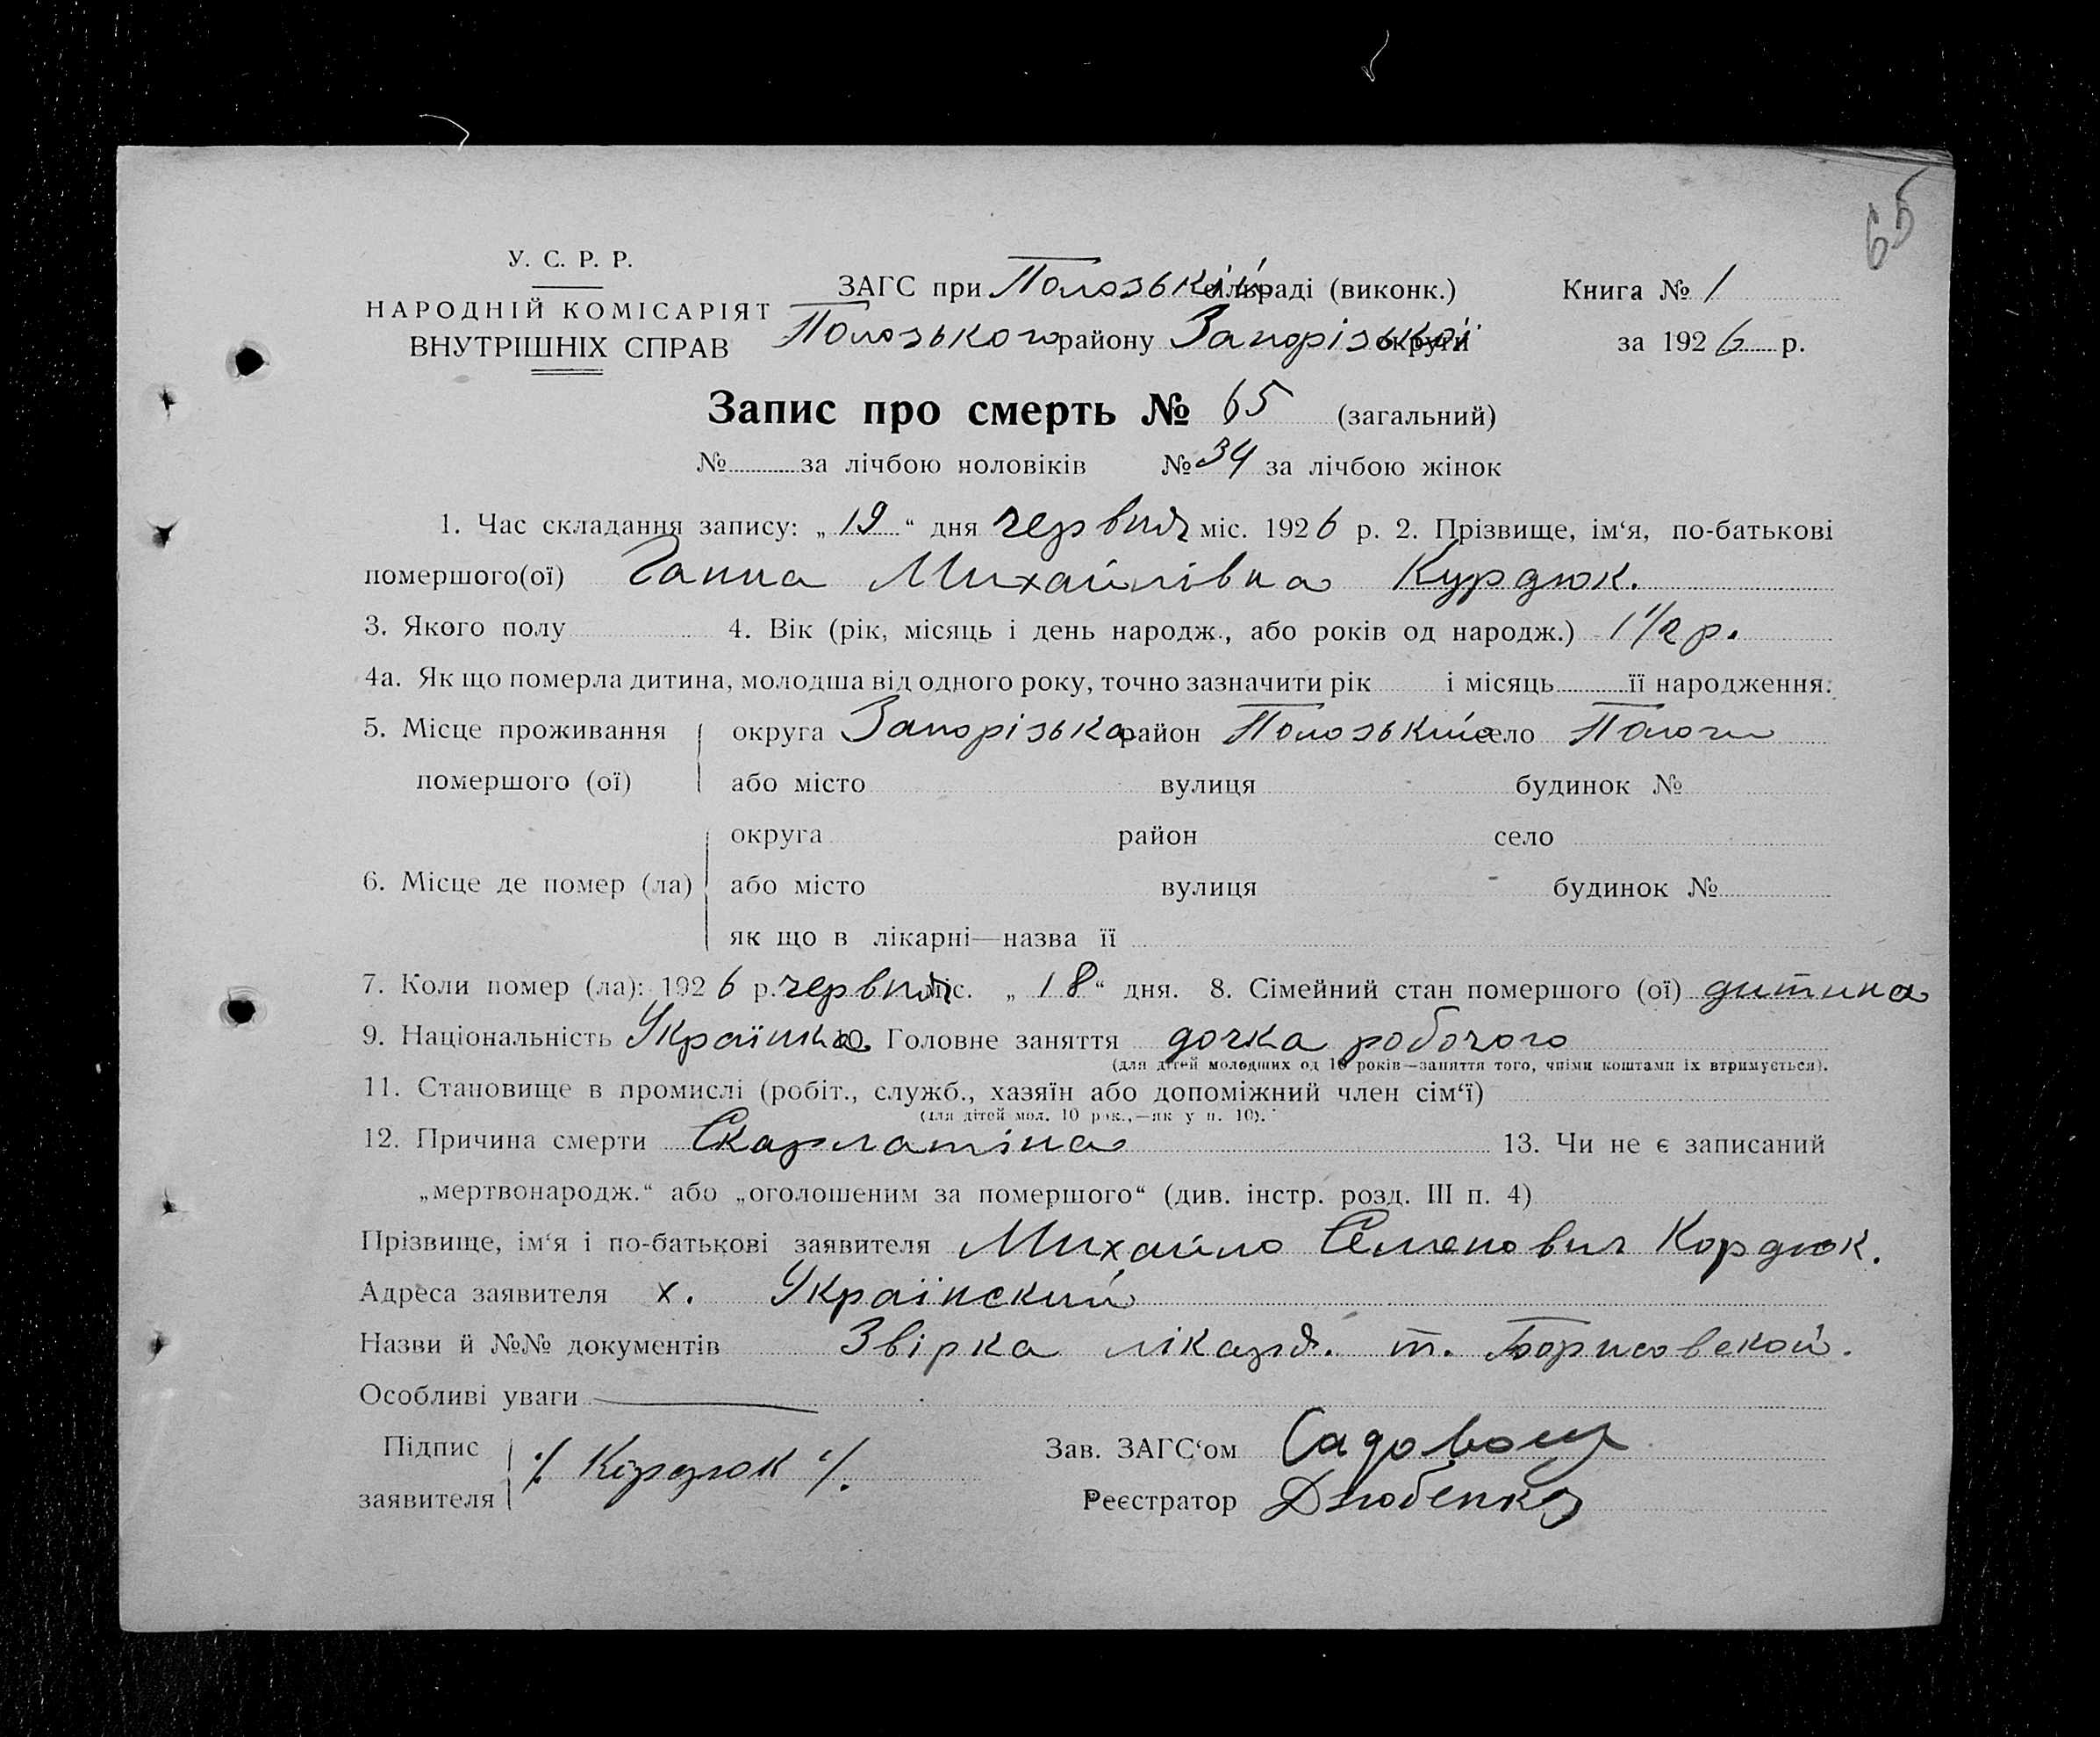 65
У. С. Р. Р.
НАРОДНІЙ КОМІСАРІЯТ
ВНУТРІШНІХ СПРАВ
ЗАГС при Пологській сільраді (виконк.)
Пологського району Запорізької округи
Книга № 1
за 1926 р.
Запис про смерть № 65 (загальний)
№ за лічбою ноловіків № 34 за лічбою жінок
1. Час складання запису: „19“ дня червня міс. 1926 р. 2. Прізвище, ім‘я, по-батькові
помершого(ої) Ганна Михайлівна Курдюк.
3. Якого полу 4. Вік (рік, місяць і день народж., або років од народж.) 1 1/2 р.
4а. Як що померла дитина, молодша від одного року, точно зазначити рік і місяць її народження.
5. Місце проживання помершого (ої) округа Запорізька район Пологський село Пологи
або місто вулиця будинок №
6. Місце де помер (ла) округа район село
або місто вулиця будинок №
як що в лікарні—назва її
7. Коли помер (ла): 1926 р. червня міс. „18“ дня. 8. Сімейний стан помершого (ої) дитина
9. Національність Українка 10. Головне заняття дочка робочого
(для дітей молодших од 10 років—заняття того, чиїми коштами їх втримується).
11. Становище в промислі (робіт., служб., хазяїн або допоміжний член сім‘ї)
(для дітей мол. 10 рок.,—як у п. 10).
12. Причина смерти Скарлатіна 13. Чи не є записаний
„мертвонародж.“ або „оголошеним за помершого“ (див. інстр. розд. III п. 4)
Прізвище, ім‘я і по-батькові заявителя Михайло Семенович Кордюк.
Адреса заявителя х. Україиский
Назви й №№ документів Звірка лікаря. т. Борисовской.
Особливі уваги
Підпис заявителя ·/. Кордюк ·/.
Зав. ЗАГС‘ом
Реєстратор Дзюбенко